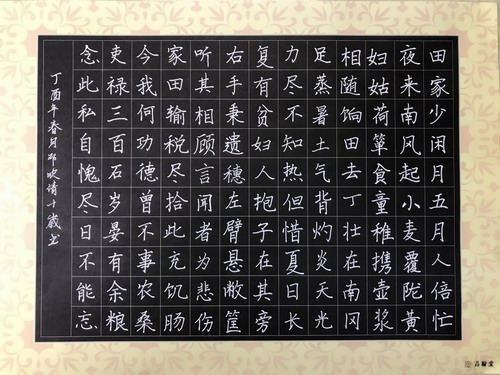 田家少闲月五月人倍忙
夜来南风起小麦覆陇黄
妇姑荷箪食童稚携壶浆
相随饷田去丁壮在南冈
足蒸暑土气背灼炎天光
力尽不知热但惜夏日长
复有贫妇人抱子在其旁
右手秉遗穗左臂悬敝筐
听其相顾言闻者为悲伤
家田输税尽拾此充饥肠
今我何功德曾不事农桑
吏禄三百石岁晏有余粮
念此私自愧尽日不能忘
丁酉年春月 十岁书